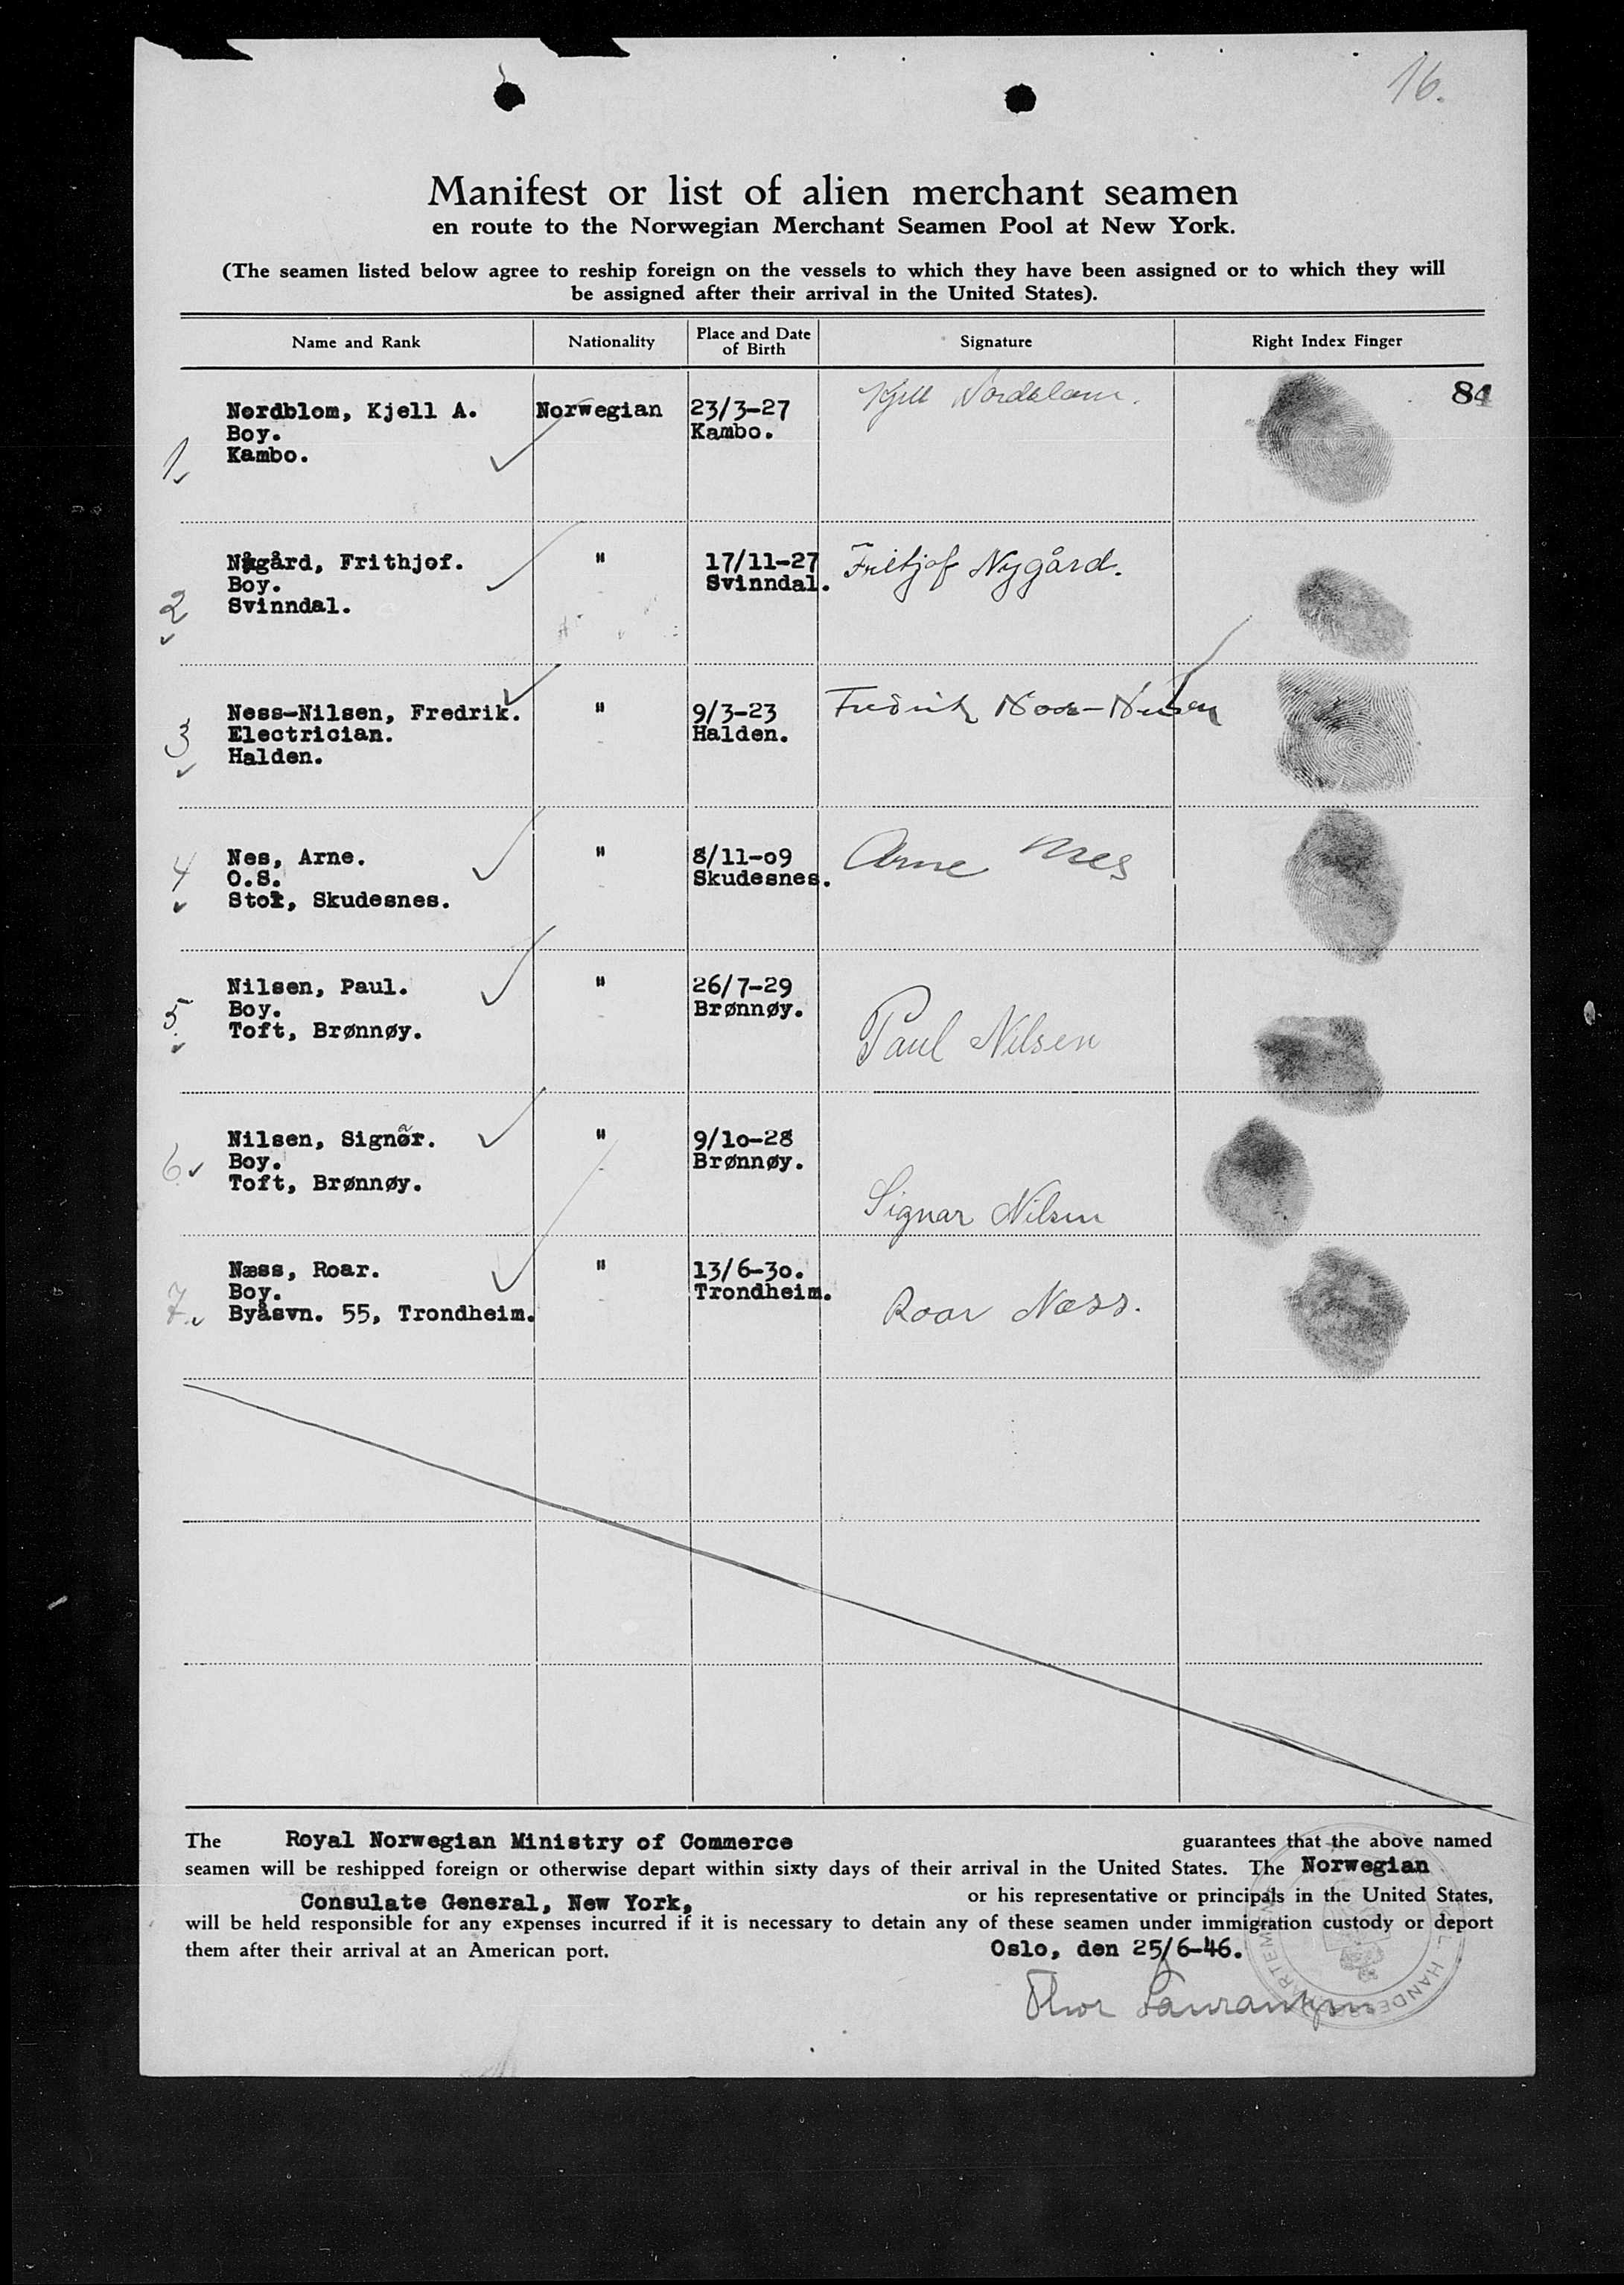 16.
Manifest or list of alien merchant seamen
en route to the Norwegian Merchant Seamen Pool at New York.
(The seamen listed below agree to reship foreign on the vessels to which they have been assigned or to which they will
be assigned after their arrival in the United States).
Name and Rank Nationality Place and Date of Birth Signature Right Index Finger
84
1. Nordblom, Kjell A. Norwegian 23/3-27 Kjell Nordblom.
Boy. Kambo.
Kambo.
2 Nygård, Frithjof. " 17/11-27 Fritjof Nygård.
Boy. Svinndal.
Svinndal.
3 Ness-Nilsen, Fredrik. " 9/3-23 Fredrik Ness-Nilsen
Electrician. Halden.
Halden.
4 Nes, Arne. " 8/11-09 Arne Nes
O.S. Skudesnes.
Stol, Skudesnes.
5. Nilsen, Paul. " 26/7-29 Paul Nilsen
Boy. Brønnøy.
Toft, Brønnøy.
6. Nilsen, Signar. " 9/10-28 Signar Nilsen
Boy. Brønnøy.
Toft, Brønnøy.
7. Næss, Roar. " 13/6-30. Roar Næss.
Boy. Trondheim.
Byåsvn. 55, Trondheim.
The Royal Norwegian Ministry of Commerce guarantees that the above named
seamen will be reshipped foreign or otherwise depart within sixty days of their arrival in the United States. The Norwegian
Consulate General, New York, or his representative or principals in the United States,
will be held responsible for any expenses incurred if it is necessary to detain any of these seamen under immigration custody or deport
them after their arrival at an American port. Oslo, den 25/6-46.
Thor